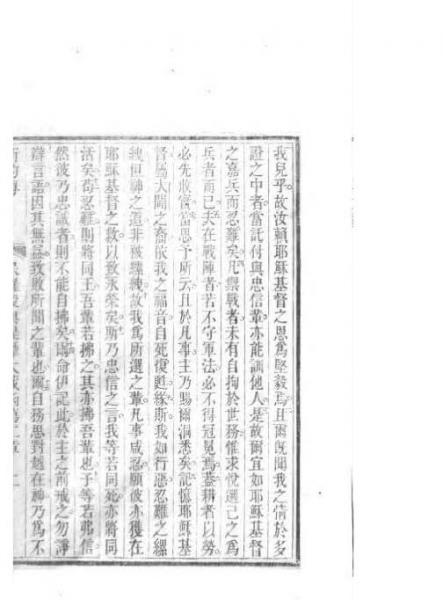 我兒乎故汝賴耶穌基督之恩爲堅毅焉且爾既聞我之情於多
證之中者當託付與忠信輩亦能訓他人是故爾宜如耶穌基督
之嘉兵而忍難矣凡禦戰者未有自拘於世務惟求悅選己之爲
兵者而已夫在戰陣者若不守軍法必不得冠冕焉蓋耕者以勞
必先收實當思予所云且於凡事主乃賜爾洞悉矣記憶耶穌基
督屬大闢之裔依我之福音自死復甦緣斯我如行惡忍難之縲
絏但神之道非被縲絏故我爲所選之輩凡事咸忍願彼亦獲在
耶穌基督之救以致永榮矣斯乃忠信之言我等若同死亦將同
活矣苟忍難則將同王吾輩若拂之其亦拂吾輩也予等若弗信
然彼乃忠誠者則不能自拂矣爾命伊記此於主之前戒之勿諍
辯言語因其無益致敗所聞之輩也爾自務思對越在神乃爲不